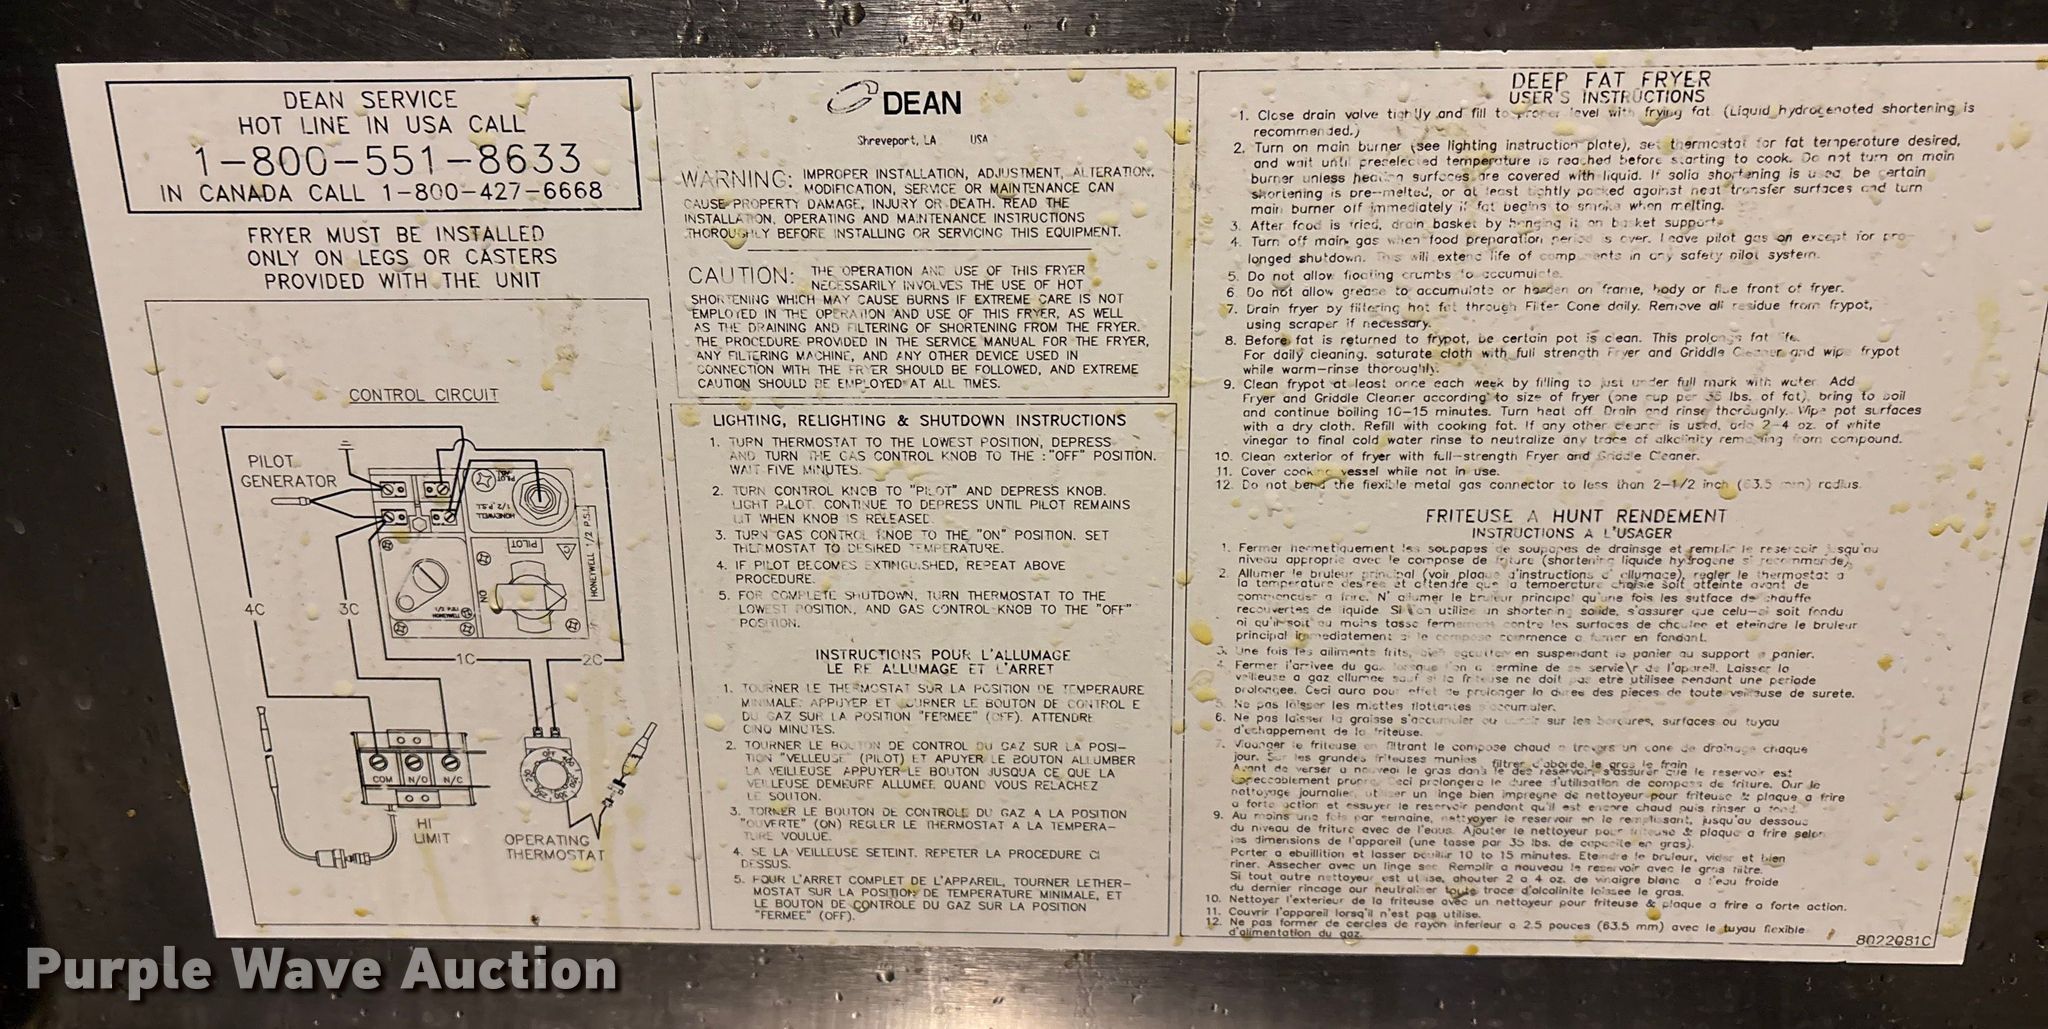 DEAN SERVICE
HOT LINE IN USA CALL
1-800-551-8633
IN CANADA CALL 1-800-427-6668
FRYER MUST BE INSTALLED
ONLY ON LEGS OR CASTERS
PROVIDED WITH THE UNIT
CONTROL CIRCUIT
PILOT
GENERATOR
PILOT
HONEYWELL
1/2 P.S.I.
PILOT
ON
HONEYWELL 1/2 P.S.I.
HONEYWELL
4C
3C
1C
2C
COM
N/O
N/C
HI
LIMIT
OFF
OPERATING
THERMOSTAT
DEAN
Shreveport, LA USA
WARNING: IMPROPER INSTALLATION, ADJUSTMENT, ALTERATION,
MODIFICATION, SERVICE OR MAINTENANCE CAN
CAUSE PROPERTY DAMAGE, INJURY OR DEATH. READ THE
INSTALLATION, OPERATING AND MAINTENANCE INSTRUCTIONS
THOROUGHLY BEFORE INSTALLING OR SERVICING THIS EQUIPMENT.
CAUTION: THE OPERATION AND USE OF THIS FRYER
NECESSARILY INVOLVES THE USE OF HOT
SHORTENING WHICH MAY CAUSE BURNS IF EXTREME CARE IS NOT
EMPLOYED IN THE OPERATION AND USE OF THIS FRYER, AS WELL
AS THE DRAINING AND FILTERING OF SHORTENING FROM THE FRYER.
THE PROCEDURE PROVIDED IN THE SERVICE MANUAL FOR THE FRYER,
ANY FILTERING MACHINE, AND ANY OTHER DEVICE USED IN
CONNECTION WITH THE FRYER SHOULD BE FOLLOWED, AND EXTREME
CAUTION SHOULD BE EMPLOYED AT ALL TIMES.
LIGHTING, RELIGHTING & SHUTDOWN INSTRUCTIONS
1. TURN THERMOSTAT TO THE LOWEST POSITION, DEPRESS
AND TURN THE GAS CONTROL KNOB TO THE :"OFF" POSITION.
WAIT FIVE MINUTES.
2. TURN CONTROL KNOB TO "PILOT" AND DEPRESS KNOB.
LIGHT PILOT. CONTINUE TO DEPRESS UNTIL PILOT REMAINS
LIT WHEN KNOB IS RELEASED.
3. TURN GAS CONTROL KNOB TO THE "ON" POSITION. SET
THERMOSTAT TO DESIRED TEMPERATURE.
4. IF PILOT BECOMES EXTINGUISHED, REPEAT ABOVE
PROCEDURE.
5. FOR COMPLETE SHUTDOWN, TURN THERMOSTAT TO THE
LOWEST POSITION, AND GAS CONTROL KNOB TO THE "OFF"
POSITION.
INSTRUCTIONS POUR L'ALLUMAGE
LE RE ALLUMAGE ET L'ARRET
1. TOURNER LE THERMOSTAT SUR LA POSITION DE TEMPERAURE
MINIMALE; APPUYER ET TOURNER LE BOUTON DE CONTROL E
DU GAZ SUR LA POSITION "FERMEE" (OFF). ATTENDRE
CINQ MINUTES.
2. TOURNER LE BOUTON DE CONTROL DU GAZ SUR LA POSI-
TION "VELLEUSE" (PILOT) ET APUYER LE BOUTON ALLUMBER
LA VEILLEUSE APPUYER LE BOUTON JUSQUA CE QUE LA
VEILLEUSE DEMEURE ALLUMEE QUAND VOUS RELACHEZ
LE SOUTON.
3. TORNER LE BOUTON DE CONTROLE DU GAZ A LA POSITION
"OUVERTE" (ON) REGLER LE THERMOSTAT A LA TEMPERA-
TURE VOULUE.
4. SE LA VEILLEUSE SETEINT. REPETER LA PROCEDURE CI
DESSUS.
5. POUR L'ARRET COMPLET DE L'APPAREIL, TOURNER LETHER-
MOSTAT SUR LA POSITION DE TEMPERATURE MINIMALE, ET
LE BOUTON DE CONTROLE DU GAZ SUR LA POSITION
"FERMEE" (OFF).
DEEP FAT FRYER
USER'S INSTRUCTIONS
1. Close drain valve tightly and fill to proper level with frying fat. (Liquid hydrogenated shortening is
recommended.)
2. Turn on main burner (see lighting instruction plate), set thermostat for fat temperature desired,
and wait until preselected temperature is reached before starting to cook. Do not turn on main
burner unless heating surfaces are covered with liquid. If solid shortening is used, be certain
shortening is pre-melted, or at least tightly packed against heat transfer surfaces and turn
main burner off immediately if fat begins to smoke when melting.
3. After food is fried, drain basket by hanging it on basket supports
4. Turn off main gas when food preparation period is over. Leave pilot gas on except for pro-
longed shutdown. This will extend life of components in any safety pilot system.
5. Do not allow floating crumbs to accumulate.
6. Do not allow grease to accumulate or harden on frame, body or flue front of fryer.
7. Drain fryer by filtering hot fat through Filter Cone daily. Remove all residue from frypot,
using scraper if necessary.
8. Before fat is returned to frypot, be certain pot is clean. This prolongs fat life.
For daily cleaning, saturate cloth with full strength Fryer and Griddle Cleaner and wipe frypot
while warm-rinse thoroughly.
9. Clean frypot at least once each week by filling to just under full mark with water. Add
Fryer and Griddle Cleaner according to size of fryer (one cup per 35 lbs. of fat), bring to boil
and continue boiling 10-15 minutes. Turn heat off. Drain and rinse thoroughly. Wipe pot surfaces
with a dry cloth. Refill with cooking fat. If any other cleaner is used, add 2-4 oz. of white
vinegar to final cold water rinse to neutralize any trace of alkalinity remaining from compound.
10. Clean exterior of fryer with full-strength Fryer and Griddle Cleaner.
11. Cover cooking vessel while not in use.
12. Do not bend the flexible metal gas connector to less than 2-1/2 inch (63.5 mm) radius.
FRITEUSE A HUNT RENDEMENT
INSTRUCTIONS A L'USAGER
1. Fermer hermetiquement les soupapes de soupapes de drainsge et remplir le reservoir jusqu'au
niveau approprie avec le compose de friture (shortening liquide hydrogene si recommande).
2. Allumer le bruleur principal (voir plaque d'instructions d' allumage), regler le thermostat a
la temperature desree et attendre que la temperature choisie soit atteinte avant de
commencuer a frire. N' allumer le bruleur principal qu'une fois les sutface de chauffe
recouvertes de liquide. Si l'on utilise un shortening solide, s'assurer que celu-ci soit fondu
ni qu'il soit au moins tasse fermement contre les surfaces de chaulee et eteindre le bruleur
principal immediatement si le compose commence a fumer en fondant.
3. Une fois les ailiments frits, bien egoutter en suspendant le panier au support a panier.
4. Fermer l'arrivee du gaz lorsque l'on a termine de se servie\r de l'apareil. Laisser la
veilleuse a gaz allumee sauf si la friteuse ne doit pas etre utilisee pendant une periode
prolongee. Ceci aura pour effet de prolonger la duree des pieces de toute veilleuse de surete.
5. Ne pas laisser les miettes flottantes s'accumuler.
6. Ne pas laisser la graisse s'accumuler ou durcir sur les bordures, surfaces ou tuyau
d'echappement de la friteuse.
7. Vidanger le friteuse en filtrant le compose chaud a travers un cone de drainage chaque
jour. Sur les grandes friteuses munies filtrer d'aborde le gros le frain
Avant de verser a nouveai le gras dans le des reservoir, s'assurer que le reservoir est
Ceci prolongera le duree d'utilisation de compose de friture. Our le
nettoyage journalier, utiliser un linge bien impregne de nettoyeur pour friteuse & plaque a frire
a forte action et essuyer le reservoir pendant qu'il est encore chaud puis rinser a fond.
9. Au moins une fois par semaine, nettoyer le reservoir en le remplissant, jusqu'au dessous
du niveau de friture avec de l'eaus. Ajouter le nettoyeur pour friteuse & plaque a frire selon
les dimensions de l'appareil (une tasse par 35 lbs. de capacite en gras).
Porter a ebuillition et lasser bouillir 10 to 15 minutes. Eteindre le bruleur, vider et bien
riner. Assecher avec un linge sec. Remplir a nouveau le reservoir avec le gras filtre.
Si tout autre nettoyeur est utilise, ahouter 2 a 4 oz. de vinaigre blanc a l'eau froide
du dernier rincage our neutraliser toute trace d'alcalinite laissee le gras.
10. Nettoyer l'exterieur de la friteuse avec un nettoyeur pour friteuse & plaque a frire a forte action.
11. Couvrir l'appareil lorsq'il n'est pas utilise.
12. Ne pas former de cercles de rayon inferieur a 2.5 pouces (63.5 mm) avec le tuyau flexible
d'alimentation du gaz.
8022081C
Purple Wave Auction